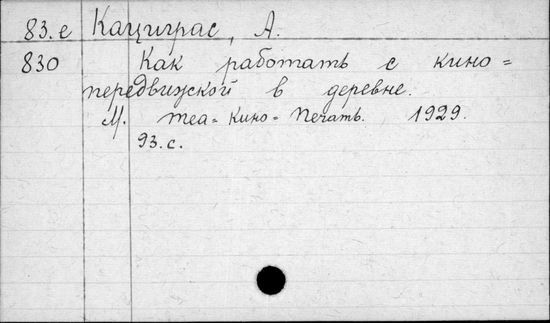 83.е Кациграс, А.
830 Как работать с кино=
передвижской в деревне.
М. теа=Кино=Печать. 1929.
93.с.